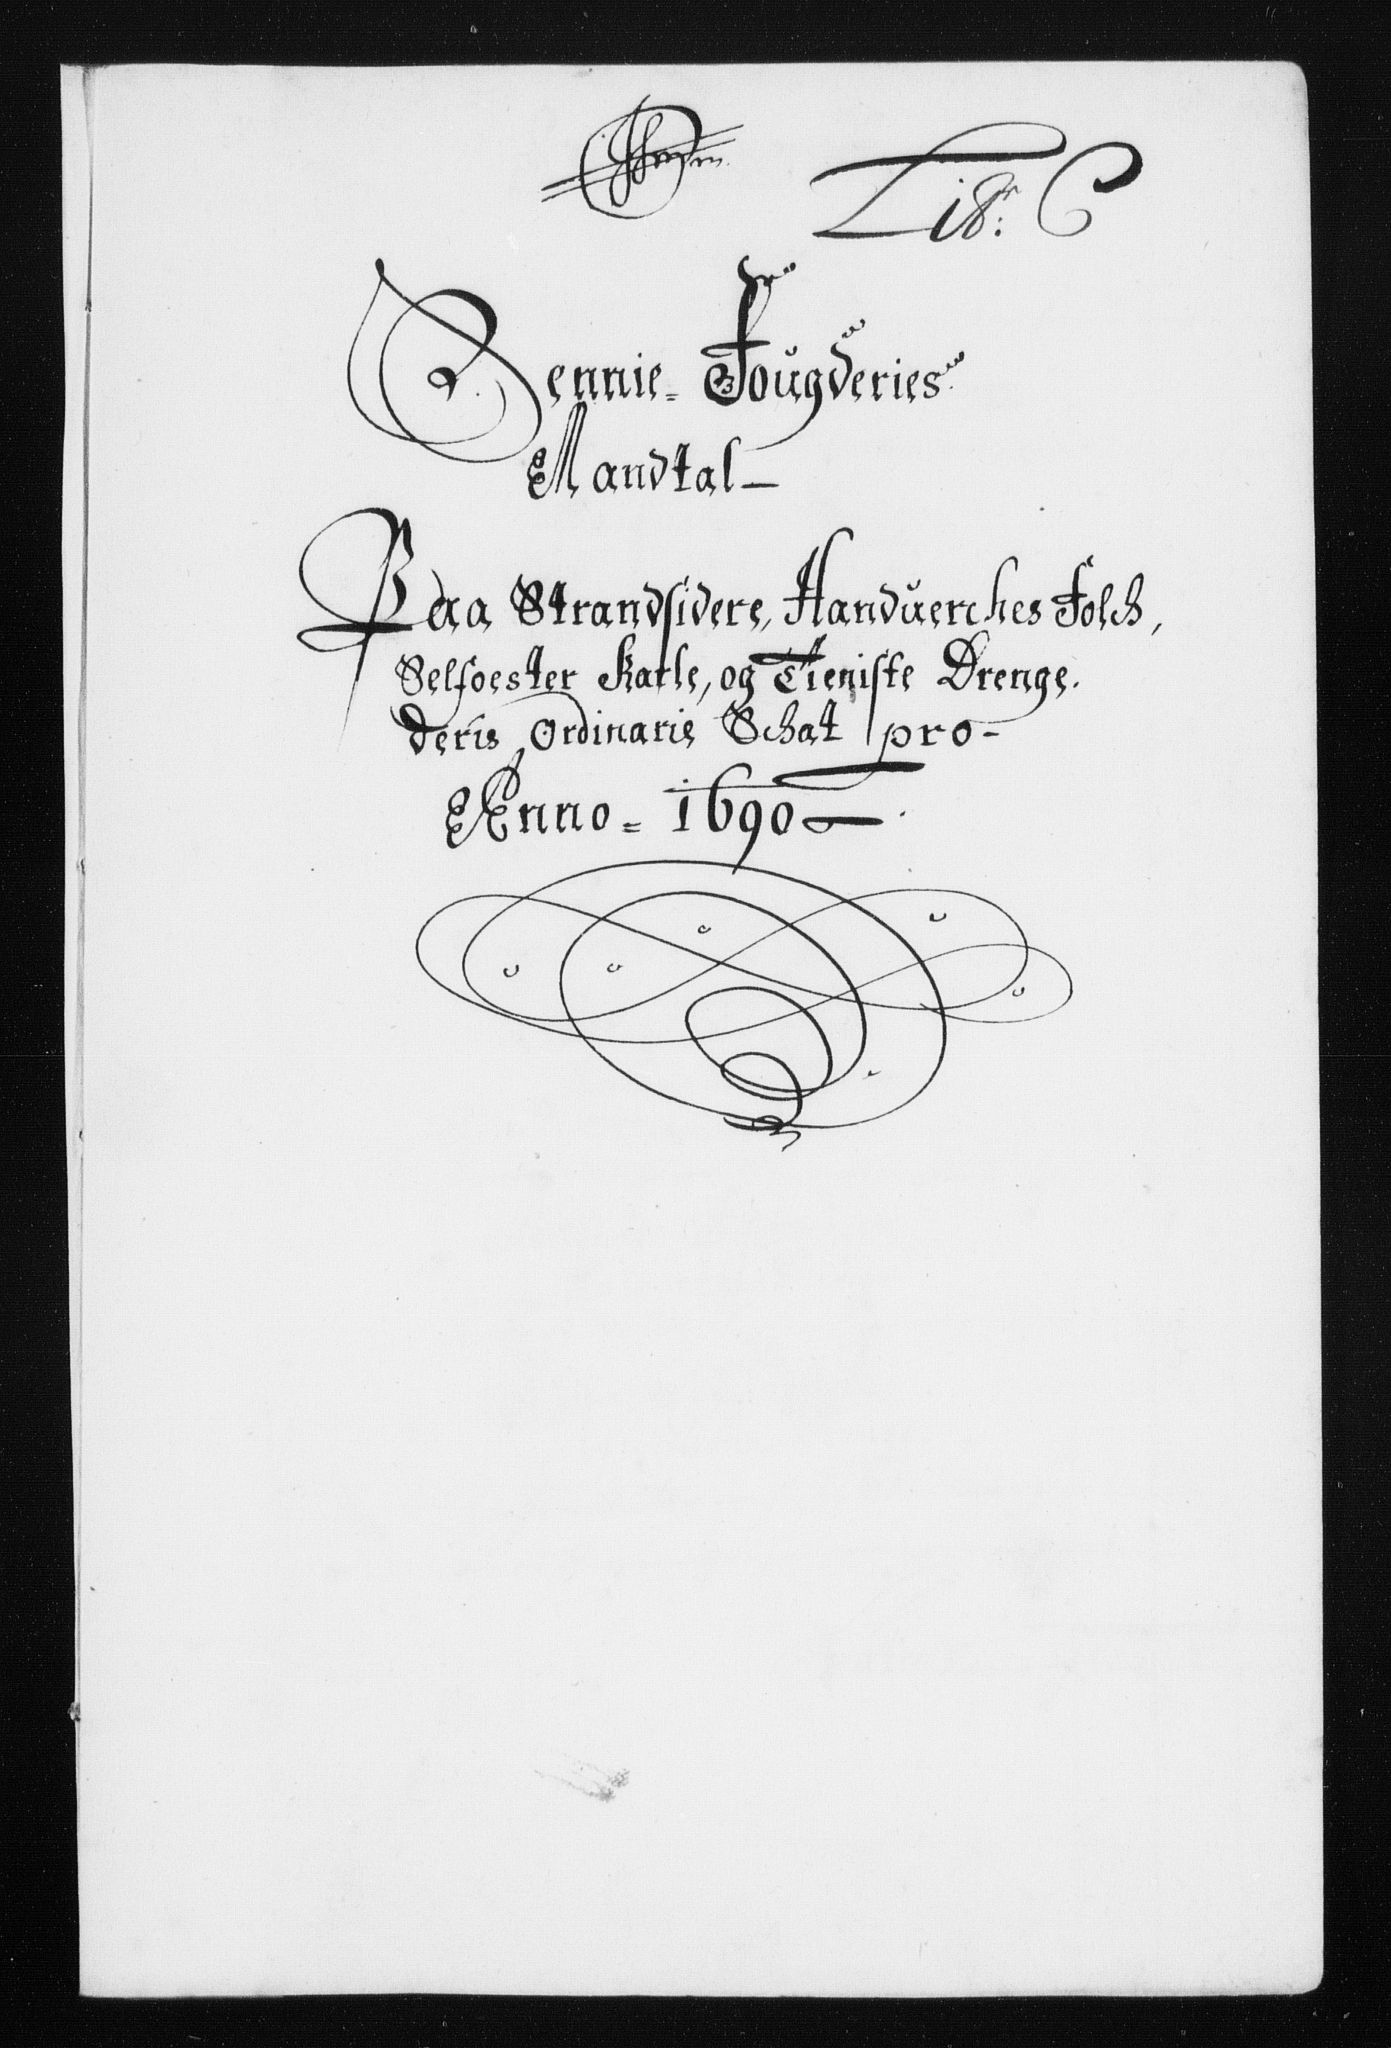 Litr: C
Sennie = Fougderies
Mandtal
Paa Strandsidere, Handuerches Folch,
Selfoester Karle, og Tieniste Drenge.
deris Ordinarie Schat pro-
Anno = 1690